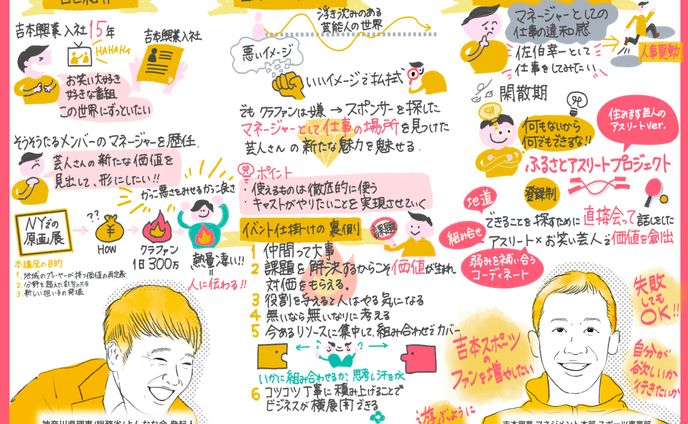 吉本興業 入社15年
HAHAHA
吉本興業入社
お笑い大好き
好きな番組
この世界にずっといたい
そうそうたるメンバーの マネージャーを歴任
芸人さんの新たな価値を
見出して、形にしたい!!
かっこ悪さをみせるかっこ良さ
NYでの
原画展
??
How
クラファン
1日300万
熱量凄い!!
＝
人に伝わる!!
本講座の目的
浮き沈みのある
芸能人の世界
悪いイメージ
いいイメージで払拭
でも クラファンは嫌 → スポンサーを探した
マネージャーとして仕事の場所を見つけた
芸人さんの新たな魅力を魅せる
ポイント
・使えるものは徹底的に使う
・キャストがやりたいことを実現させていく
イベント仕掛けの裏側
課題
1 仲間って大事
2 課題を解決するからこそ価値が生まれ
対価をもらえる。
3 役割を与えると人はやる気になる
4 無いなら無いなりに考える
5 今あるリソースに集中して、組み合わせでカバー
いかに組み合わせるか、思考し汗をかく
6 コツコツ丁寧に積み上げることで
ビジネスが横展開できる
マネージャーとしての
仕事の違和感
佐伯幸一として
仕事をしてみたい
人事異動
閑散期
何もないから
何でもできるな!!
住みます芸人の
アスリートver.
ふるさとアスリートプロジェクト
登録制
地道
組み合せ
できることを探すために直接会って話しました
アスリート×お笑い芸人で価値を創出
弱みを補い合う
コーディネート
吉本スポーツ
のファンを増やしたい
失敗
しても
OK!!
自分が
欲しいか
行きたいか
遊ぶように